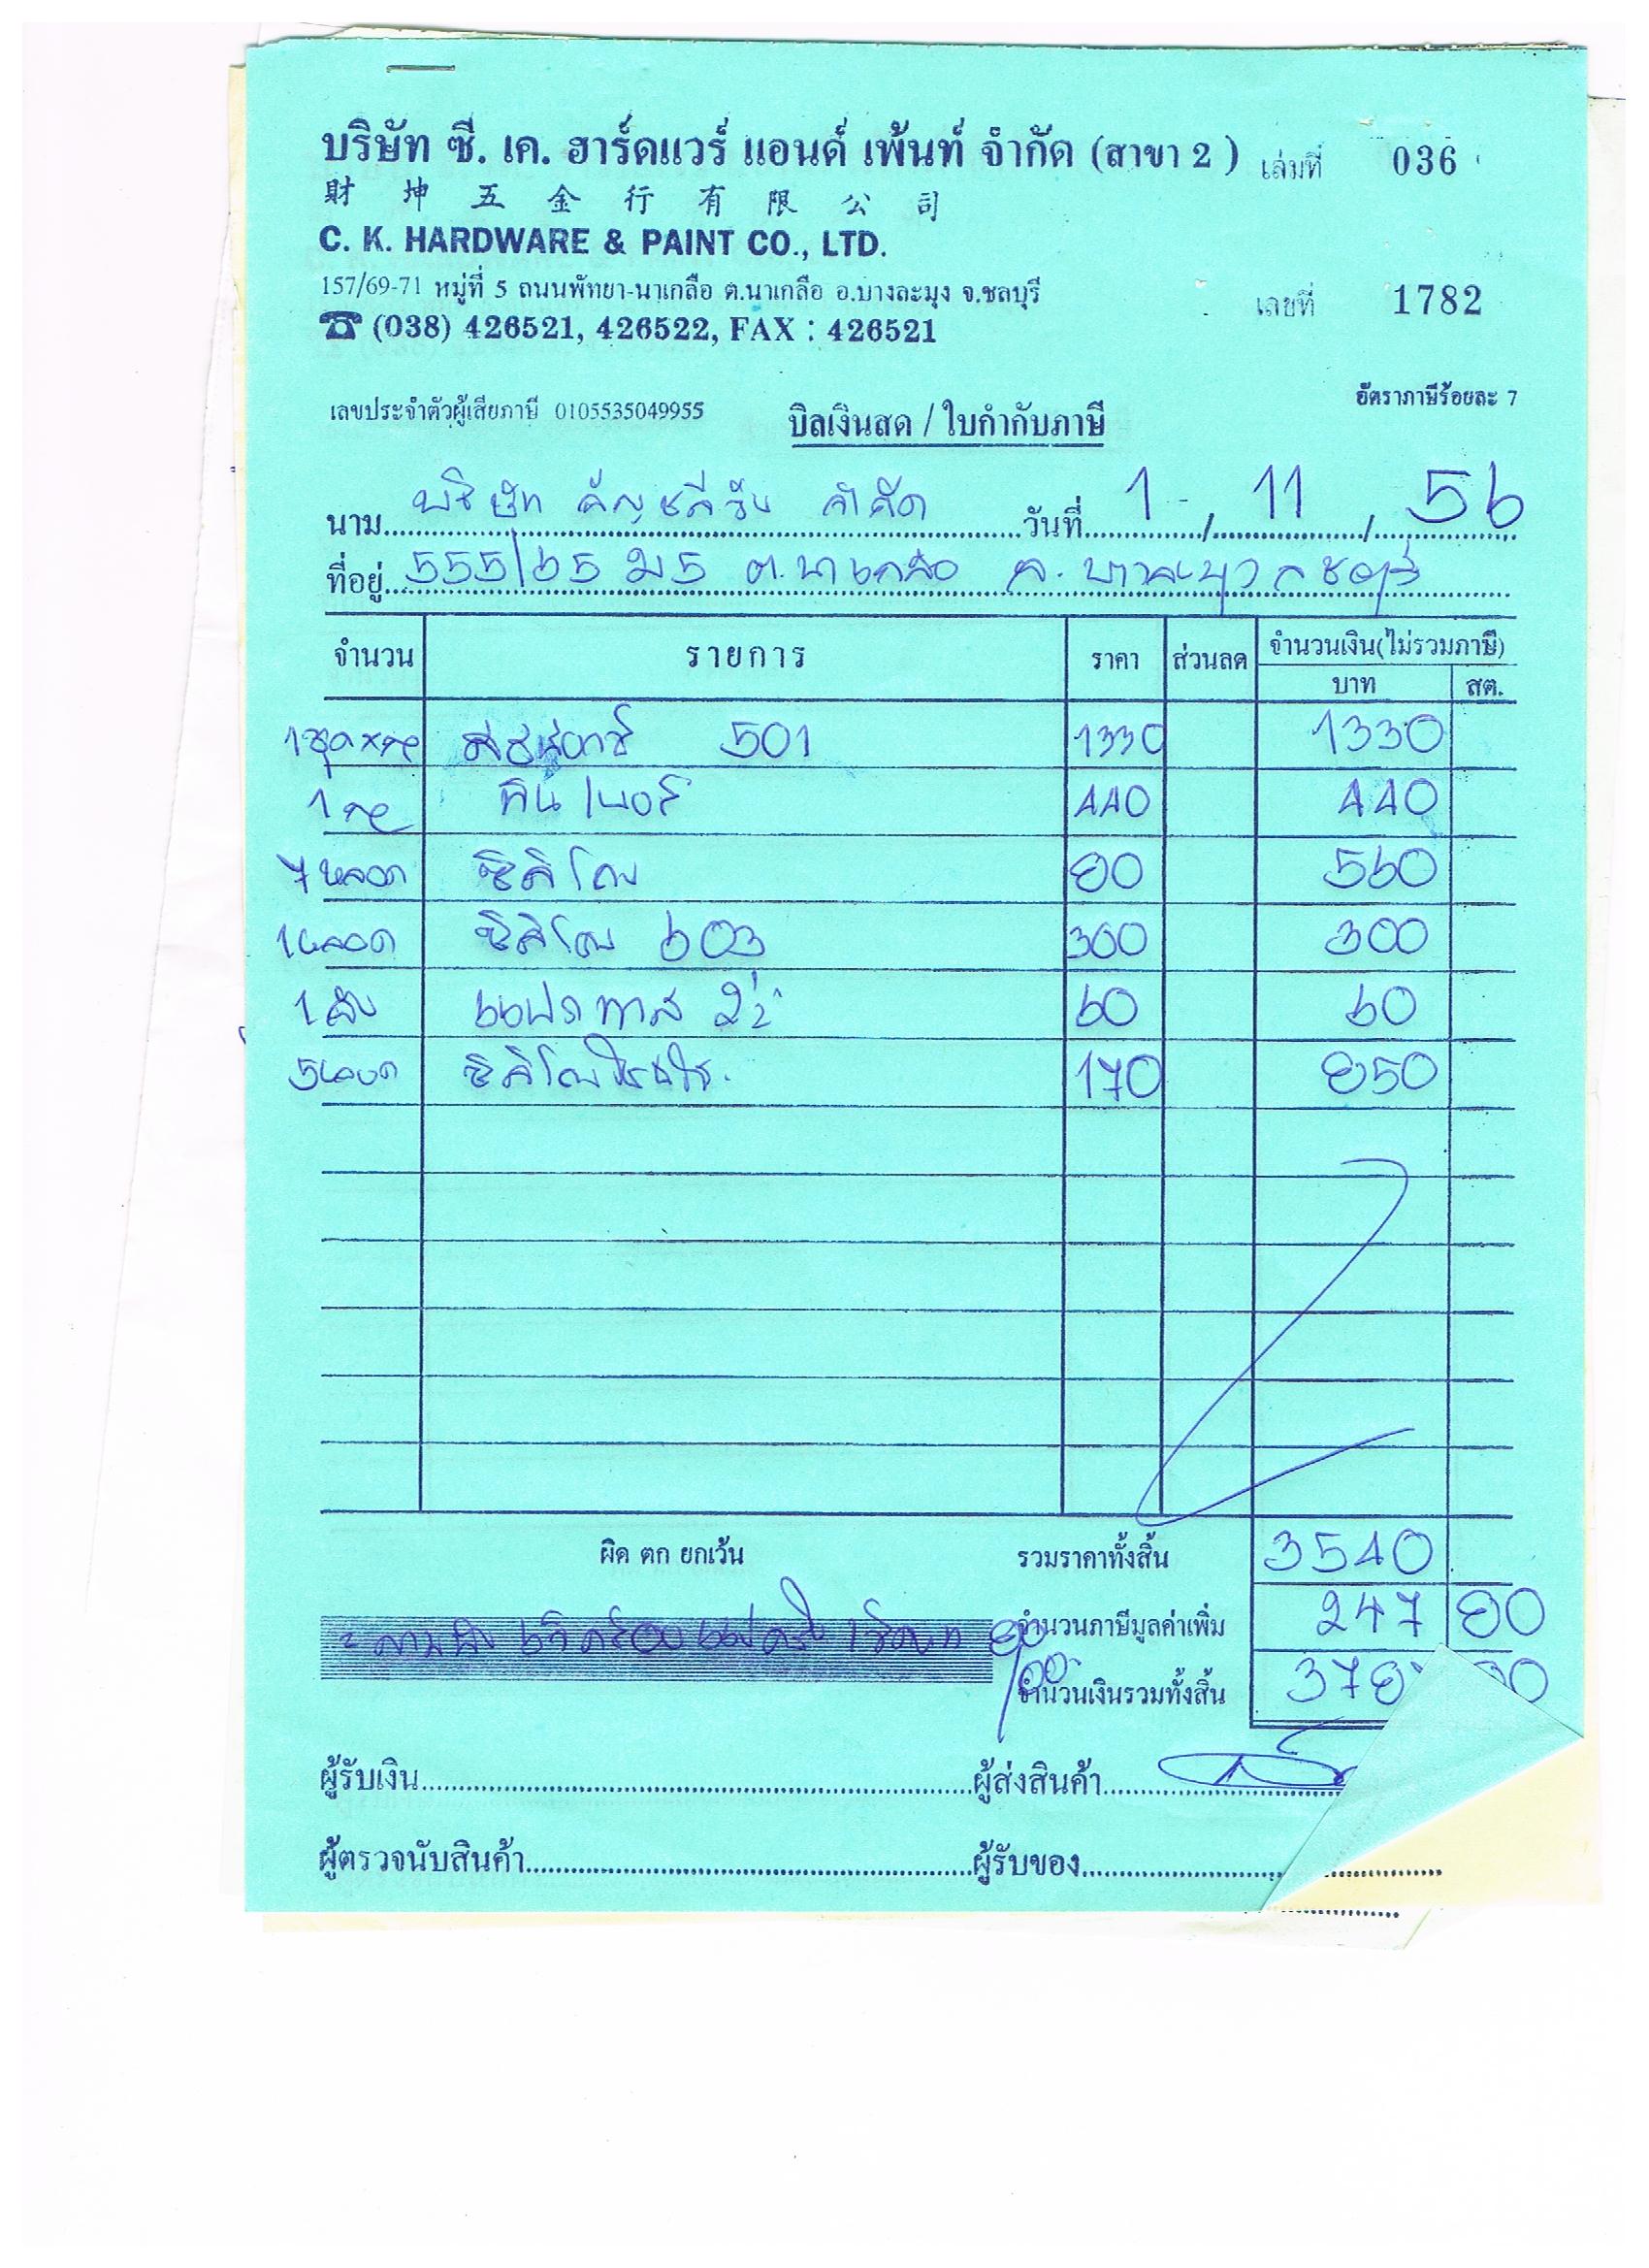 บริษัท ซี. เค. ฮาร์ดแวร์ แอนด์ เพ้นท์ จำกัด (สาขา 2 ) เล่มที่ 036
財 坤 五 金 行 有 限 公 司
C. K. HARDWARE & PAINT CO., LTD.
157/69-71 หมู่ที่ 5 ถนนพัทยา-นาเกลือ ต.นาเกลือ อ.บางละมุง จ.ชลบุรี
เลขที่ 1782
☎ (038) 426521, 426522, FAX : 426521
อัตราภาษีร้อยละ 7
เลขประจำตัวผู้เสียภาษี 0105535049955 บิลเงินสด / ใบกำกับภาษี
นาม บริษัท จำกัด วันที่ 1 / 11 / 56
ที่อยู่ 555/65 ม5 ต.นาเกลือ อ.บางละมุง จ.ชลบุรี
จำนวน รายการ ราคา ส่วนลด จำนวนเงิน(ไม่รวมภาษี)
บาท สต.
501 1330 1330
ทินเนอร์ 440 440
7 หลอด ซิลิโคน 80 560
1 หลอด ซิลิโคน 603 300 300
1 อัน แปรงทาสี 2½" 60 60
5 หลอด ซิลิโคน 170 850
ผิด ตก ยกเว้น รวมราคาทั้งสิ้น 3540
จำนวนภาษีมูลค่าเพิ่ม 247 80
จำนวนเงินรวมทั้งสิ้น 378
ผู้รับเงิน ผู้ส่งสินค้า
ผู้ตรวจนับสินค้า ผู้รับของ